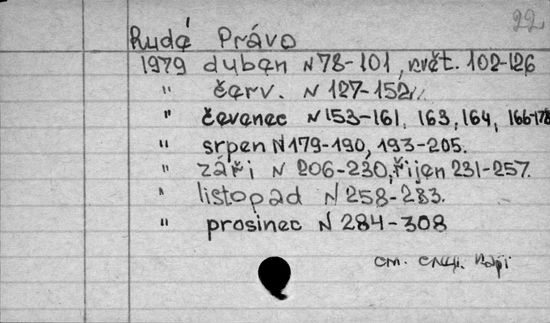 22
Rudé Právo
1979 duben N78-101, květ. 102-126
" červ. N 127-152
" čevenec N153-161, 163, 164, 166-178
" srpen N179-190, 193-205.
" září N 206-230, říjen 231-257.
" listopad N 258-283.
" prosinec N 284-308
см. след.